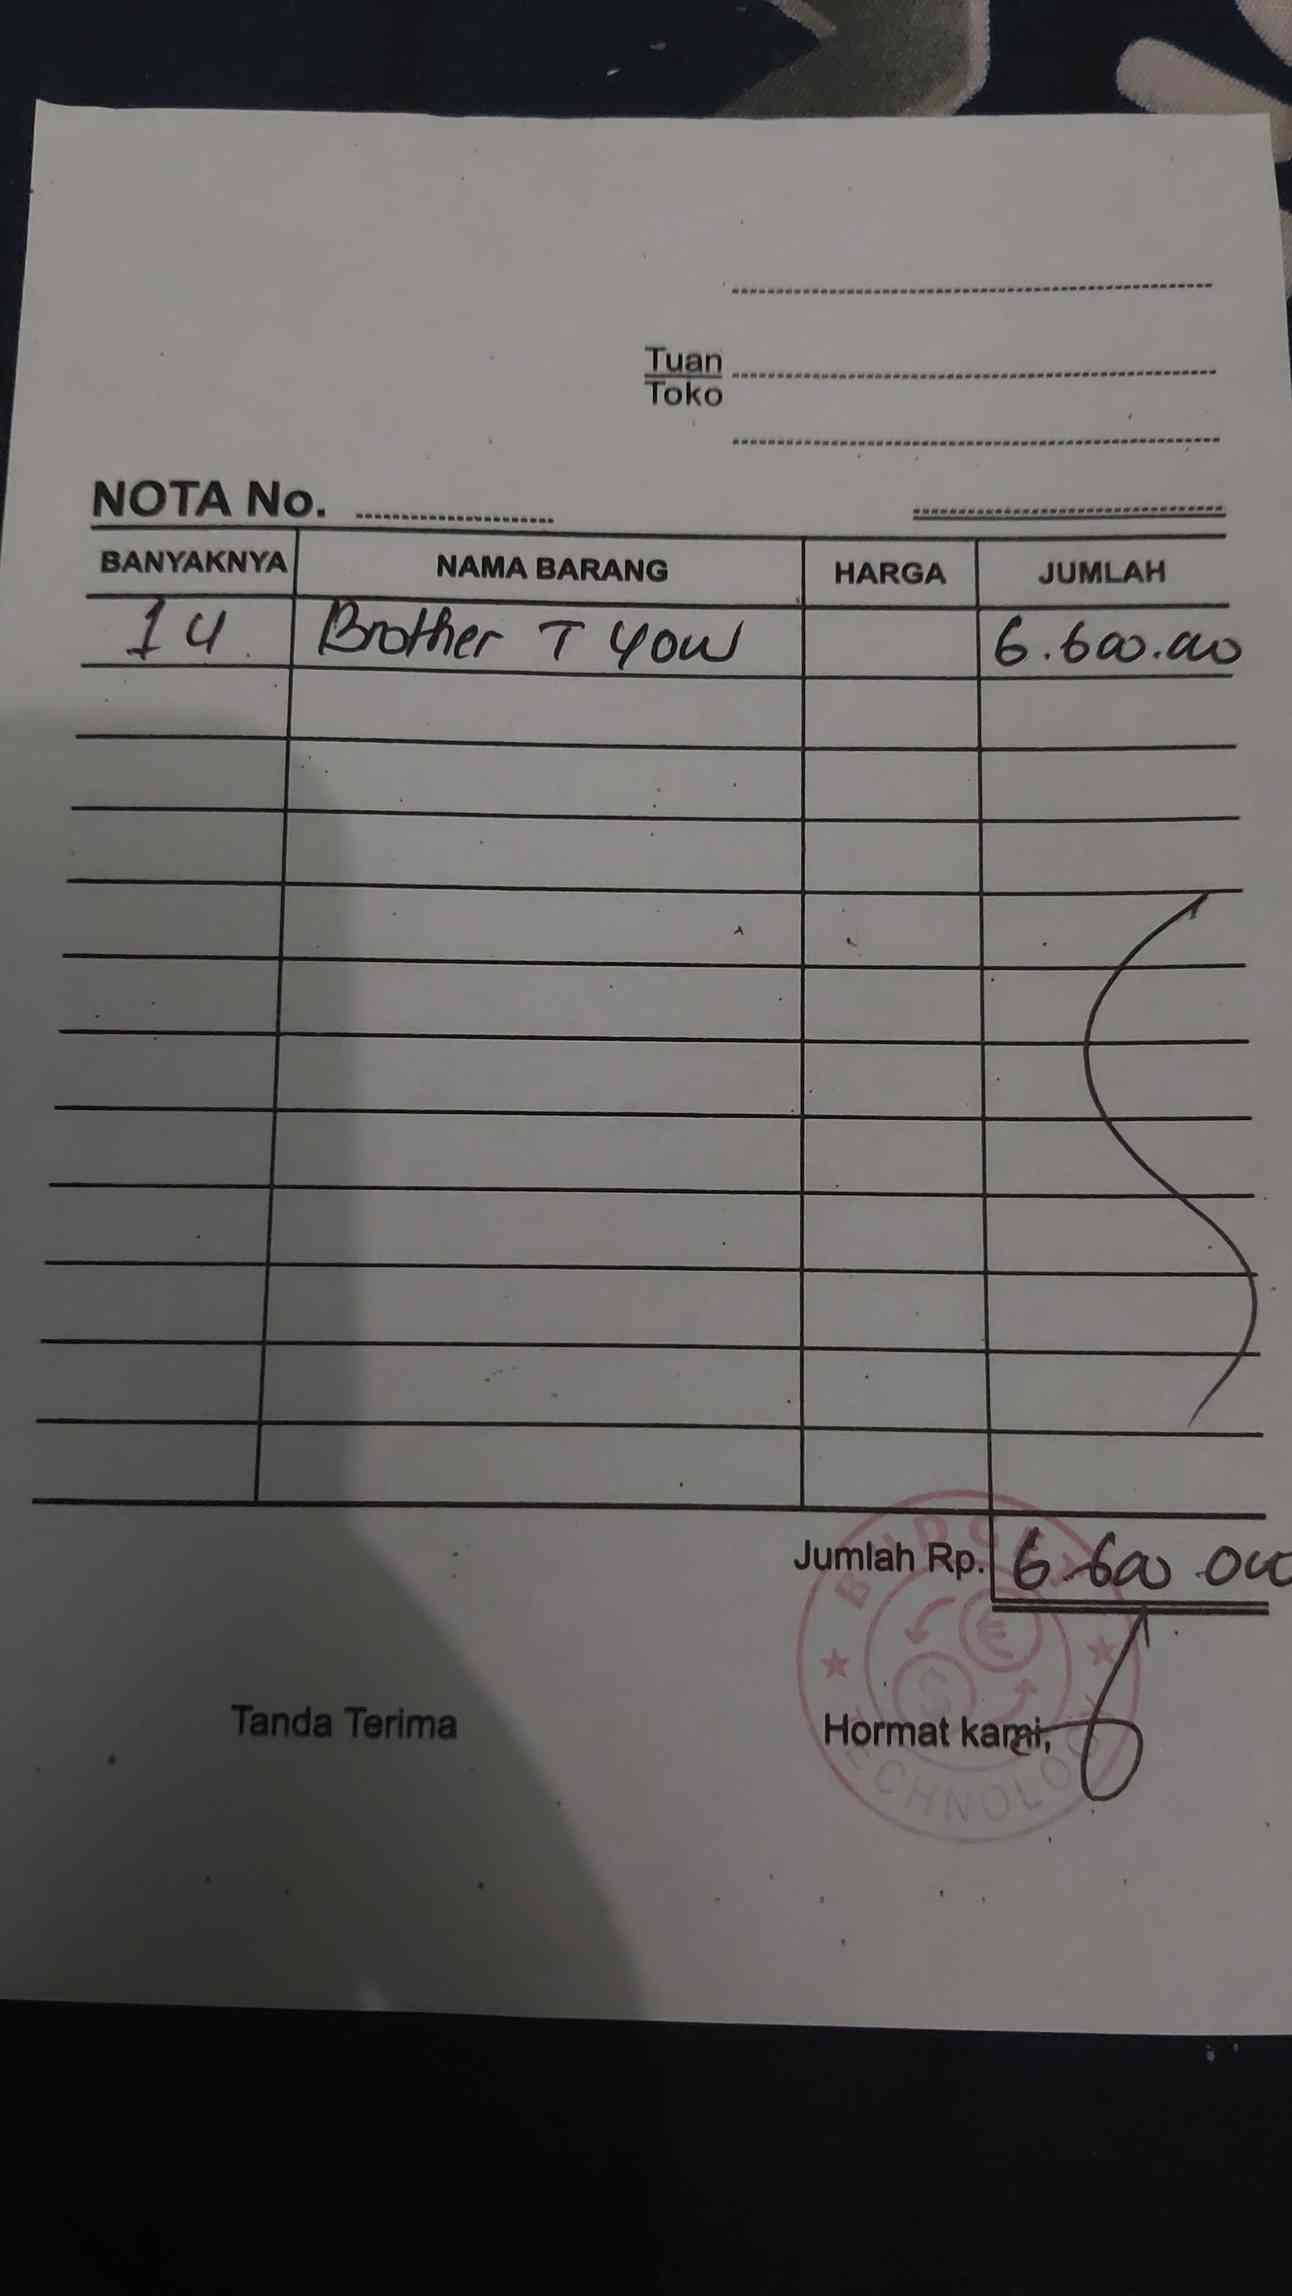 Tuan
Toko
NOTA No.
BANYAKNYA NAMA BARANG HARGA JUMLAH
1 U Brother T 4000W 6.600.000
Jumlah Rp. 6.600.000
Tanda Terima Hormat kami,
TECHNOLOGY